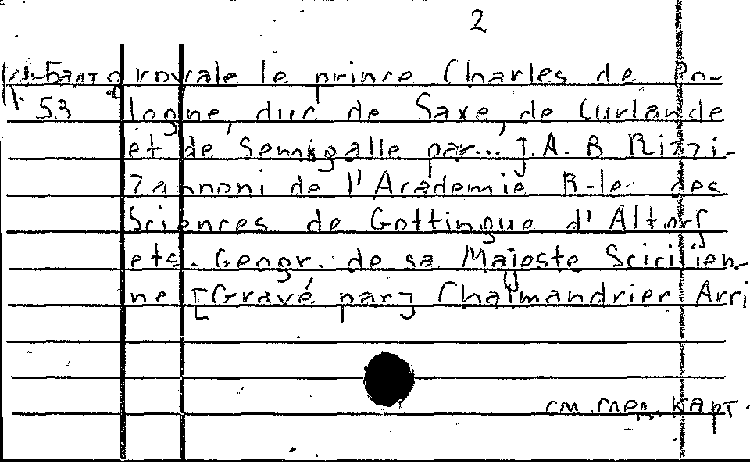 2
К1-Балт royale le prince Charles de Po-
53 logne, duc de Saxe, de Curlande
et de Semigalle par... J. A. B Rizzi-
Zannoni de l'Academie R-le des
Sciences de Gottingue d'Altorf
etc. Geogr. de sa Majeste Sicilien-
ne [Gravé par] Chalmandrier Arri
см. след. карт.